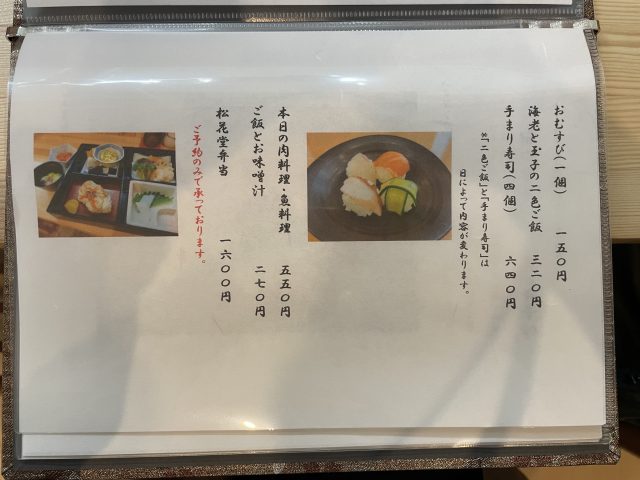 おむすび(一個) 一五〇円
海老と玉子の二色ご飯 三二〇円
手まり寿司(四個) 六四〇円
※「二色ご飯」と「手まり寿司」は
日によって内容が変わります。
本日の肉料理・魚料理 五五〇円
ご飯とお味噌汁 二七〇円
松花堂弁当 一六〇〇円
ご予約のみで承っております。